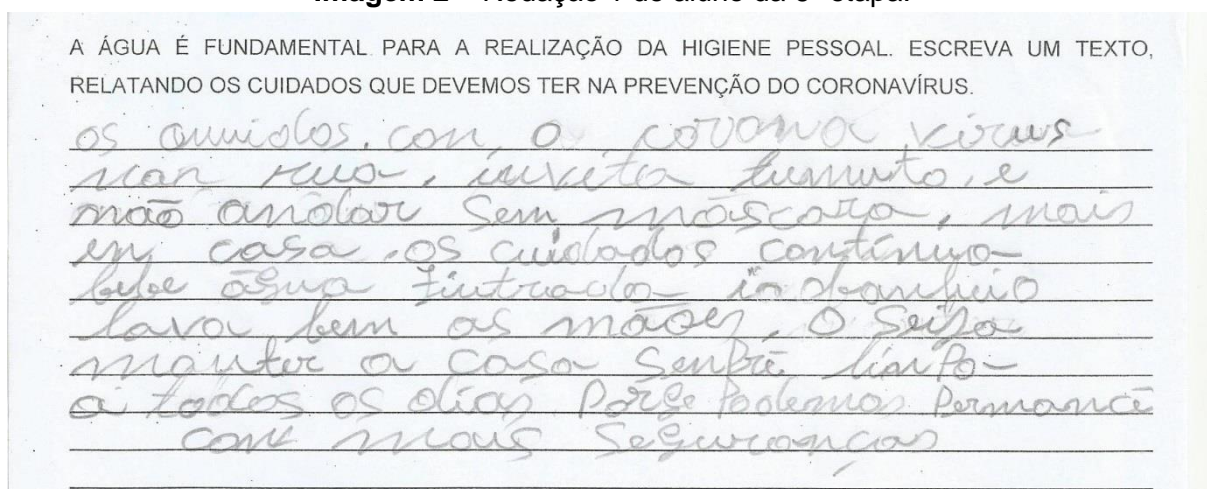 Imagem 2 – Redação 1 do aluno da 3ª etapa.
A ÁGUA É FUNDAMENTAL PARA A REALIZAÇÃO DA HIGIENE PESSOAL. ESCREVA UM TEXTO,
RELATANDO OS CUIDADOS QUE DEVEMOS TER NA PREVENÇÃO DO CORONAVÍRUS.
os cuuidos. con o corona vírus
rua, inveta tumuto, e
não andar sem máscara, mais
en casa. os cuidados contínuo
bebe água fintrada
lava bem as mãoes, o seija
manter a casa senpre linpo
a todos os dias podemos permance
com mais seguranças